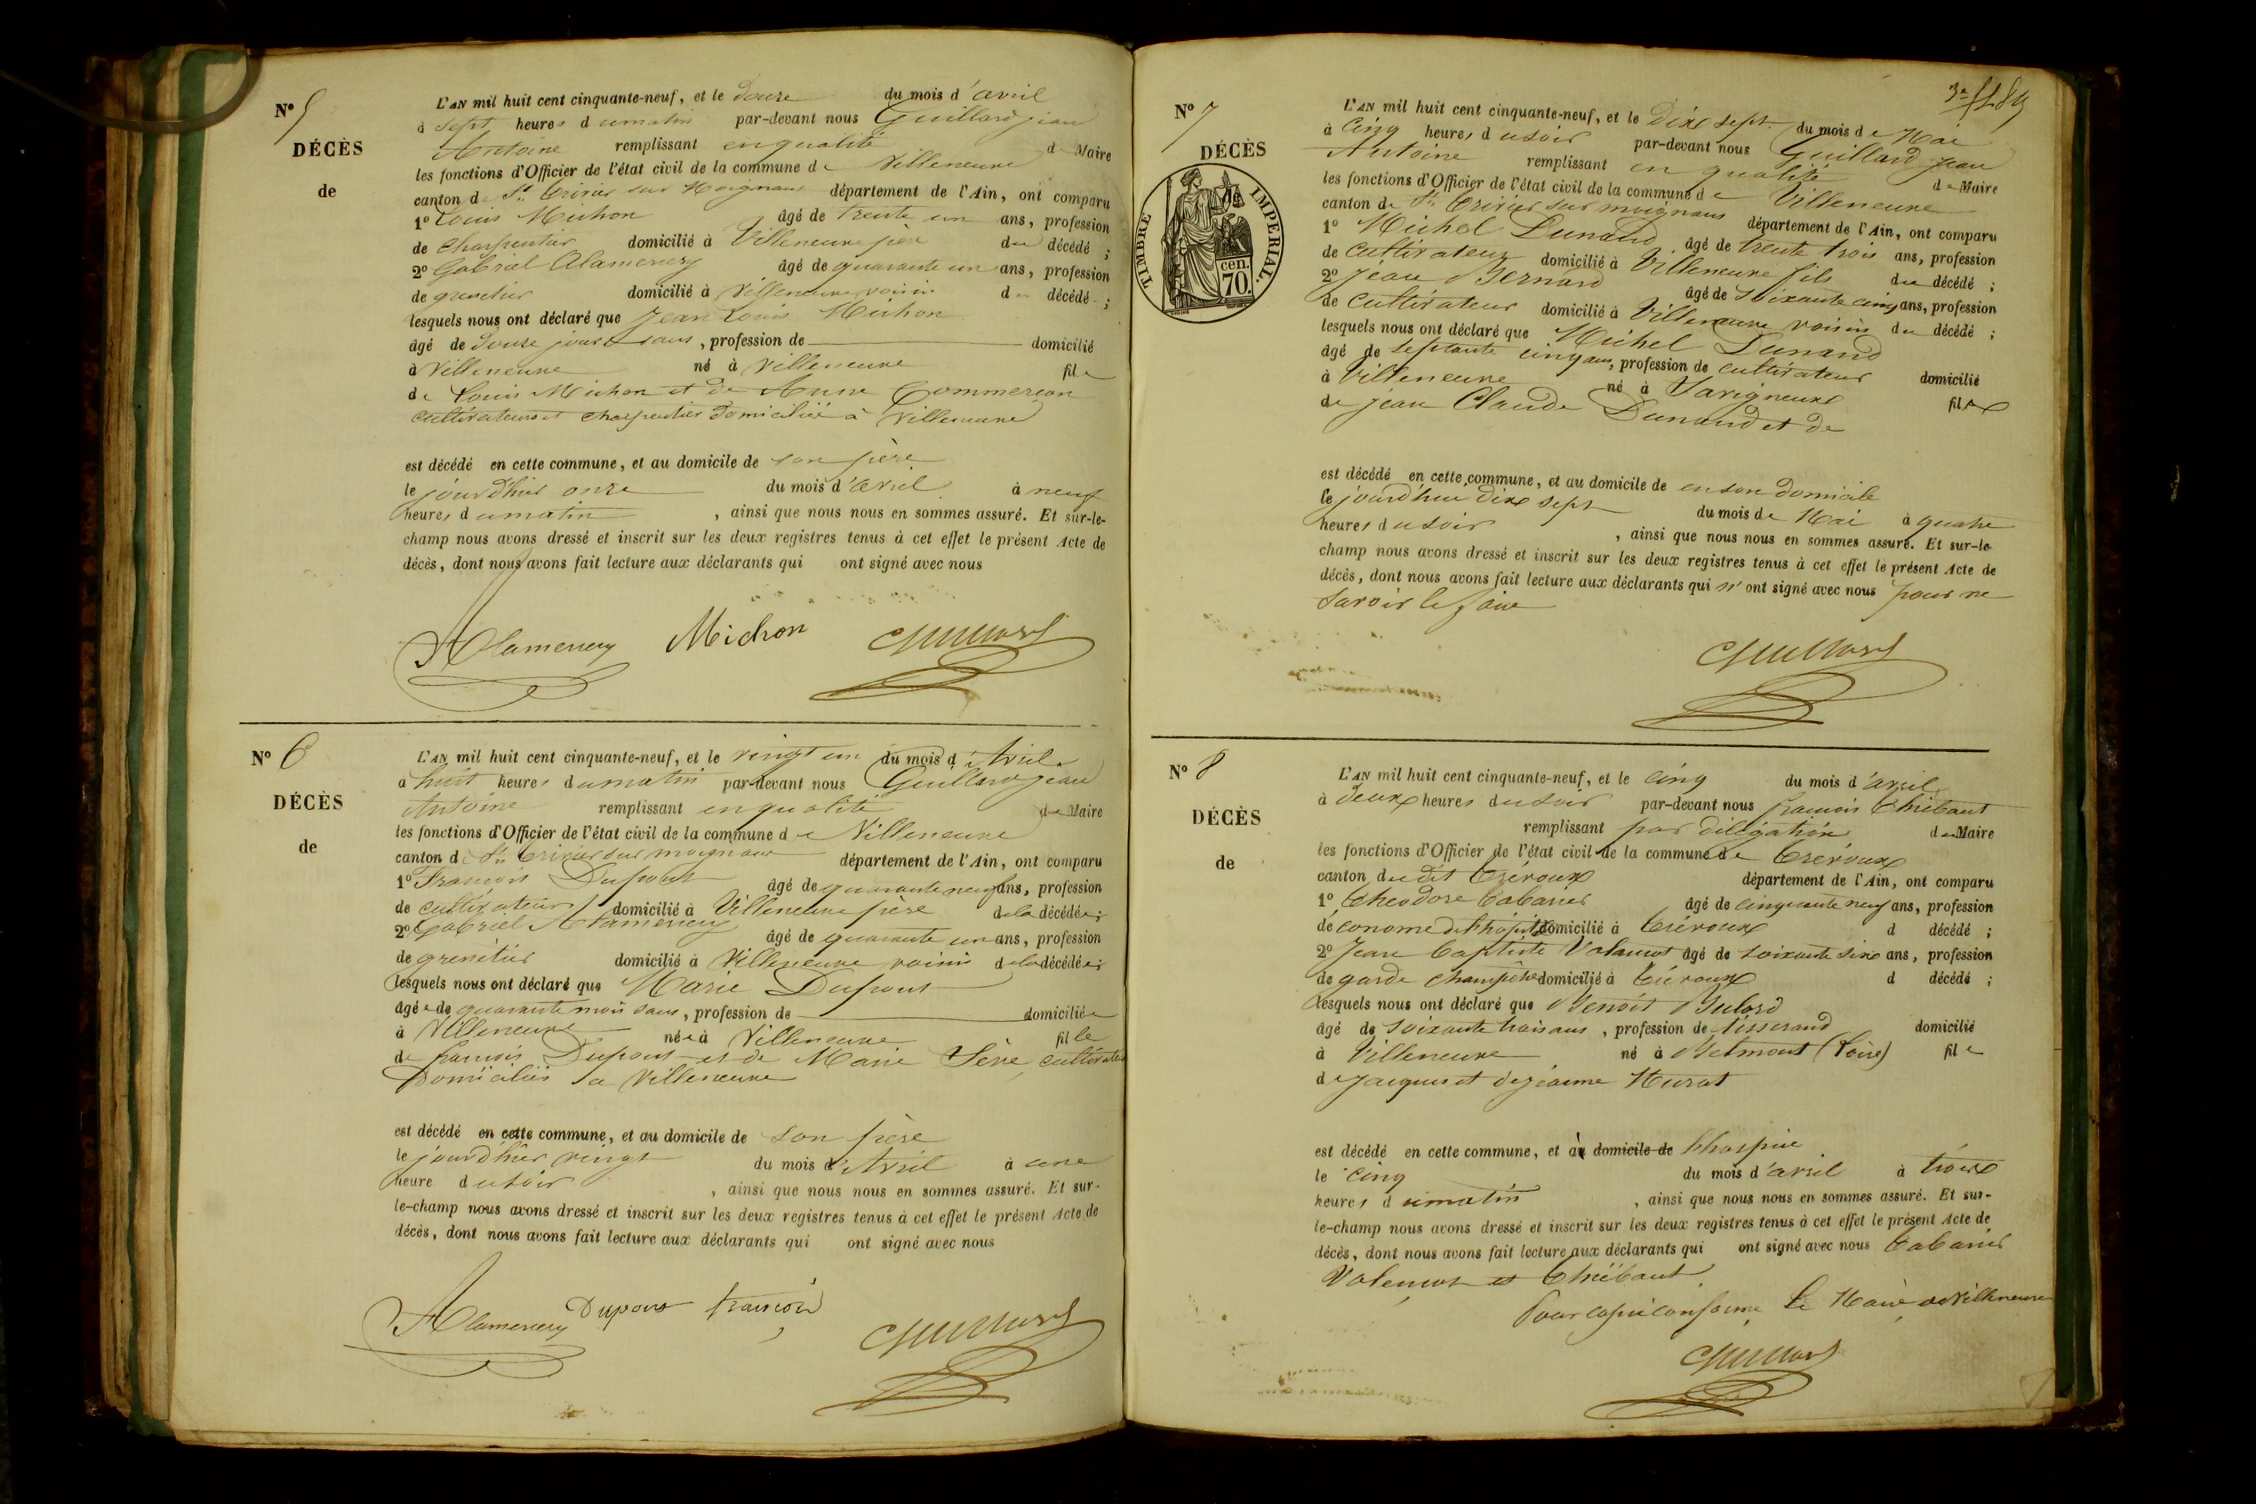 N° 5
DÉCÈS
de
L'AN mil huit cent cinquante-neuf, et le douze du mois d'avril
à sept heures du matin par-devant nous Guillard jean
Antoine remplissant en qualité de Maire
les fonctions d'Officier de l'état civil de la commune de Villeneuve
canton de St Trivier sur Moignans département de l'Ain, ont comparu
1° Louis Michon âgé de trente un ans, profession
de charpentier domicilié à Villeneuve père du décédé ;
2° Gabriel Alamercery âgé de quarante un ans, profession
de grenetier domicilié à Villeneuve voisin du décédé ;
lesquels nous ont déclaré que Jean Louis Michon
âgé de douze jours sans, profession de domicilié
à Villeneuve né à Villeneuve fils
de Louis Michon et de Anne Commerçon
cultivateurs et charpentier domicilié à Villeneuve
est décédé en cette commune, et au domicile de son père
le jourd'hier onze du mois d'avril à neuf
heures du matin, ainsi que nous nous en sommes assuré. Et sur-le-
champ nous avons dressé et inscrit sur les deux registres tenus à cet effet le présent Acte de
décès, dont nous avons fait lecture aux déclarants qui ont signé avec nous
Alamercery Michon Guillard
N° 6
DÉCÈS
de
L'AN mil huit cent cinquante-neuf, et le vingt un du mois d'Avril
à huit heures du matin par-devant nous Guillard jean
Antoine remplissant en qualité de Maire
les fonctions d'Officier de l'état civil de la commune de Villeneuve
canton de St Trivier sur moignans département de l'Ain, ont comparu
1° François Dupont âgé de quarante neuf ans, profession
de cultivateur domicilié à Villeneuve père de la décédée ;
2° Gabriel Alamercery âgé de quarante un ans, profession
de grenetier domicilié à Villeneuve voisin de la décédée ;
lesquels nous ont déclaré que Marie Dupont
âgée de quarante mois sans, profession de domiciliée
à Villeneuve née à Villeneuve fille
de françois Dupont et de Marie Sève, cultivate
Domiciliés a Villeneuve
est décédé en cette commune, et au domicile de son père
le jourd'hier vingt du mois d'Avril à une
heure du soir, ainsi que nous nous en sommes assuré. Et sur-
le-champ nous avons dressé et inscrit sur les deux registres tenus à cet effet le présent Acte de
décès, dont nous avons fait lecture aux déclarants qui ont signé avec nous
Alamercery Dupont françois Guillard
N° 7
DÉCÈS
TIMBRE IMPERIAL.
70. cen.
L'AN mil huit cent cinquante-neuf, et le Dix sept du mois de Mai
à cinq heures du soir par-devant nous Guillard jean
Antoine remplissant en qualité de Maire
les fonctions d'Officier de l'état civil de la commune de Villeneuve
canton de St Trivier sur moignans département de l'Ain, ont comparu
1° Michel Dunand âgé de trente trois ans, profession
de cultivateur domicilié à Villeneuve fils du décédé ;
2° Jean Bernard âgé de soixante cinq ans, profession
de cultivateur domicilié à Villeneuve voisin du décédé ;
lesquels nous ont déclaré que Michel Dunand
âgé de septante cinq ans, profession de cultivateur domicilié
à Villeneuve né à Savigneux fils
de jean Claude Dunand et de
est décédé en cette commune, et au domicile de en son domicile
le jourd'hui dix sept du mois de Mai à quatre
heures du soir, ainsi que nous nous en sommes assuré. Et sur-le-
champ nous avons dressé et inscrit sur les deux registres tenus à cet effet le présent Acte de
décès, dont nous avons fait lecture aux déclarants qui n'ont signé avec nous pour ne
savoir le faire
Guillard
N° 8
DÉCÈS
de
L'AN mil huit cent cinquante-neuf, et le cinq du mois d'avril
à deux heures du soir par-devant nous françois Thiébaut
remplissant par délégation du Maire
les fonctions d'Officier de l'état civil de la commune de Trévoux
canton du dit Trévoux département de l'Ain, ont comparu
1° Théodore Cabanis âgé de cinquante neuf ans, profession
de économe de l'hôpital domicilié à Trévoux d décédé ;
2° Jean Baptiste Valamot âgé de soixante six ans, profession
de garde champêtre domicilié à Trévoux d décédé ;
lesquels nous ont déclaré que Benoit Bulord
âgé de soixante trois ans, profession de tisserand domicilié
à Villeneuve né à Belmont (Loire) fils
de jacques et de jeanne Murat
est décédé en cette commune, et à domicile de l'hospice
le cinq du mois d'avril à trois
heures du matin, ainsi que nous nous en sommes assuré. Et sur-
le-champ nous avons dressé et inscrit sur les deux registres tenus à cet effet le présent Acte de
décès, dont nous avons fait lecture aux déclarants qui ont signé avec nous Cabanis
Valemot et Thiébaut.
Pour copie conforme, Le Maire de Villeneuve
Guillard